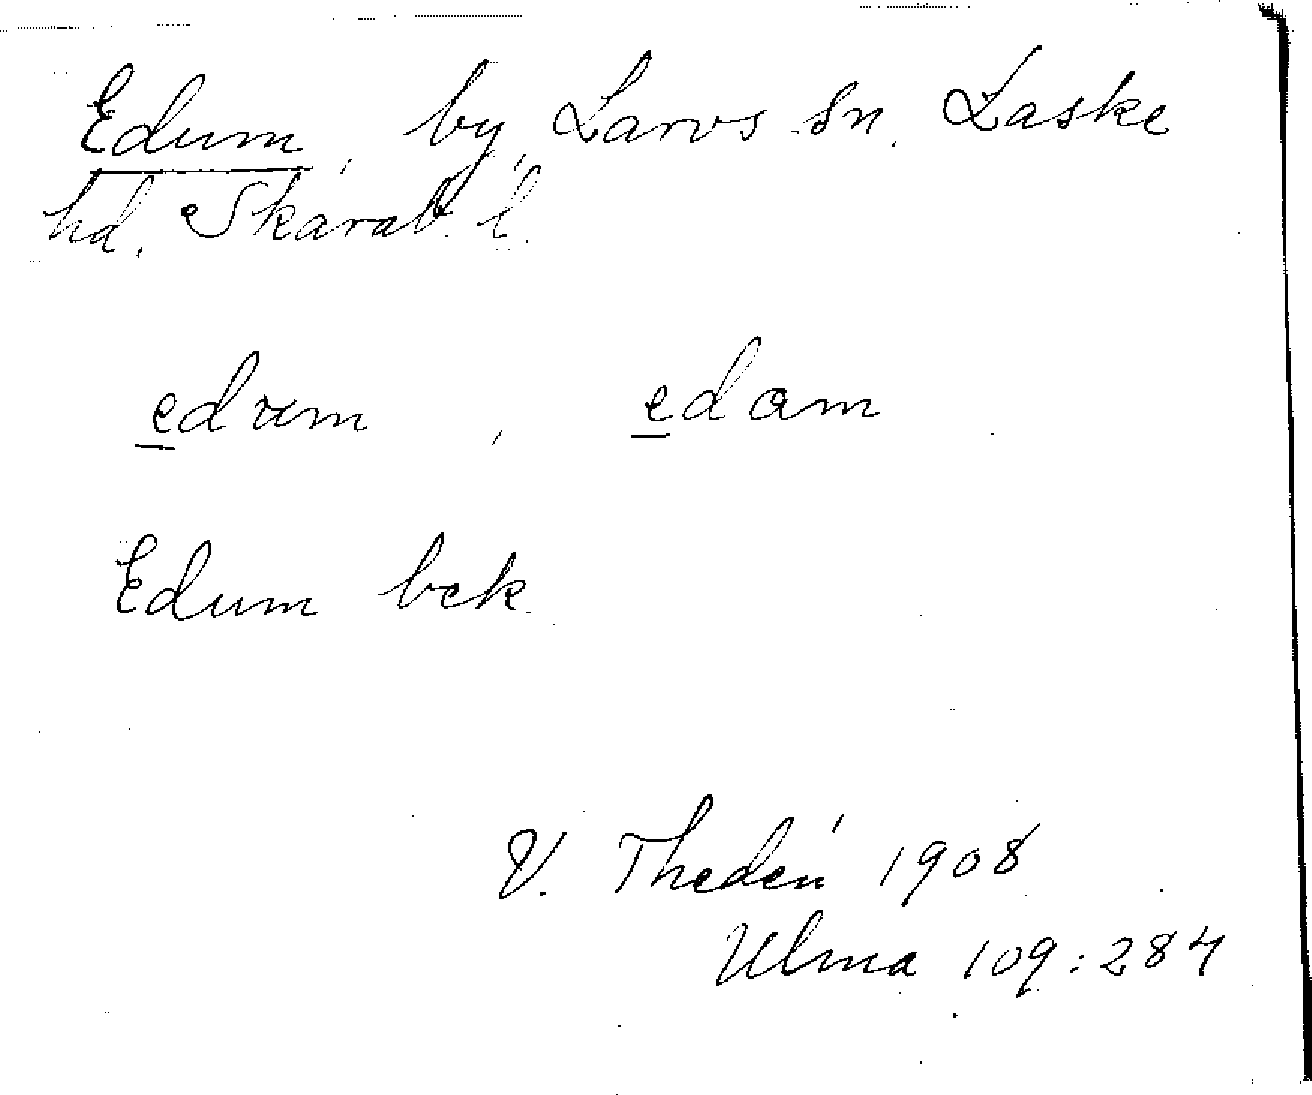 Edum, by, Larvs sn. Laske
hd. Skarab. l.
edum, edam
Edum bek.
V. Thedén 1908
Ulma 109:284